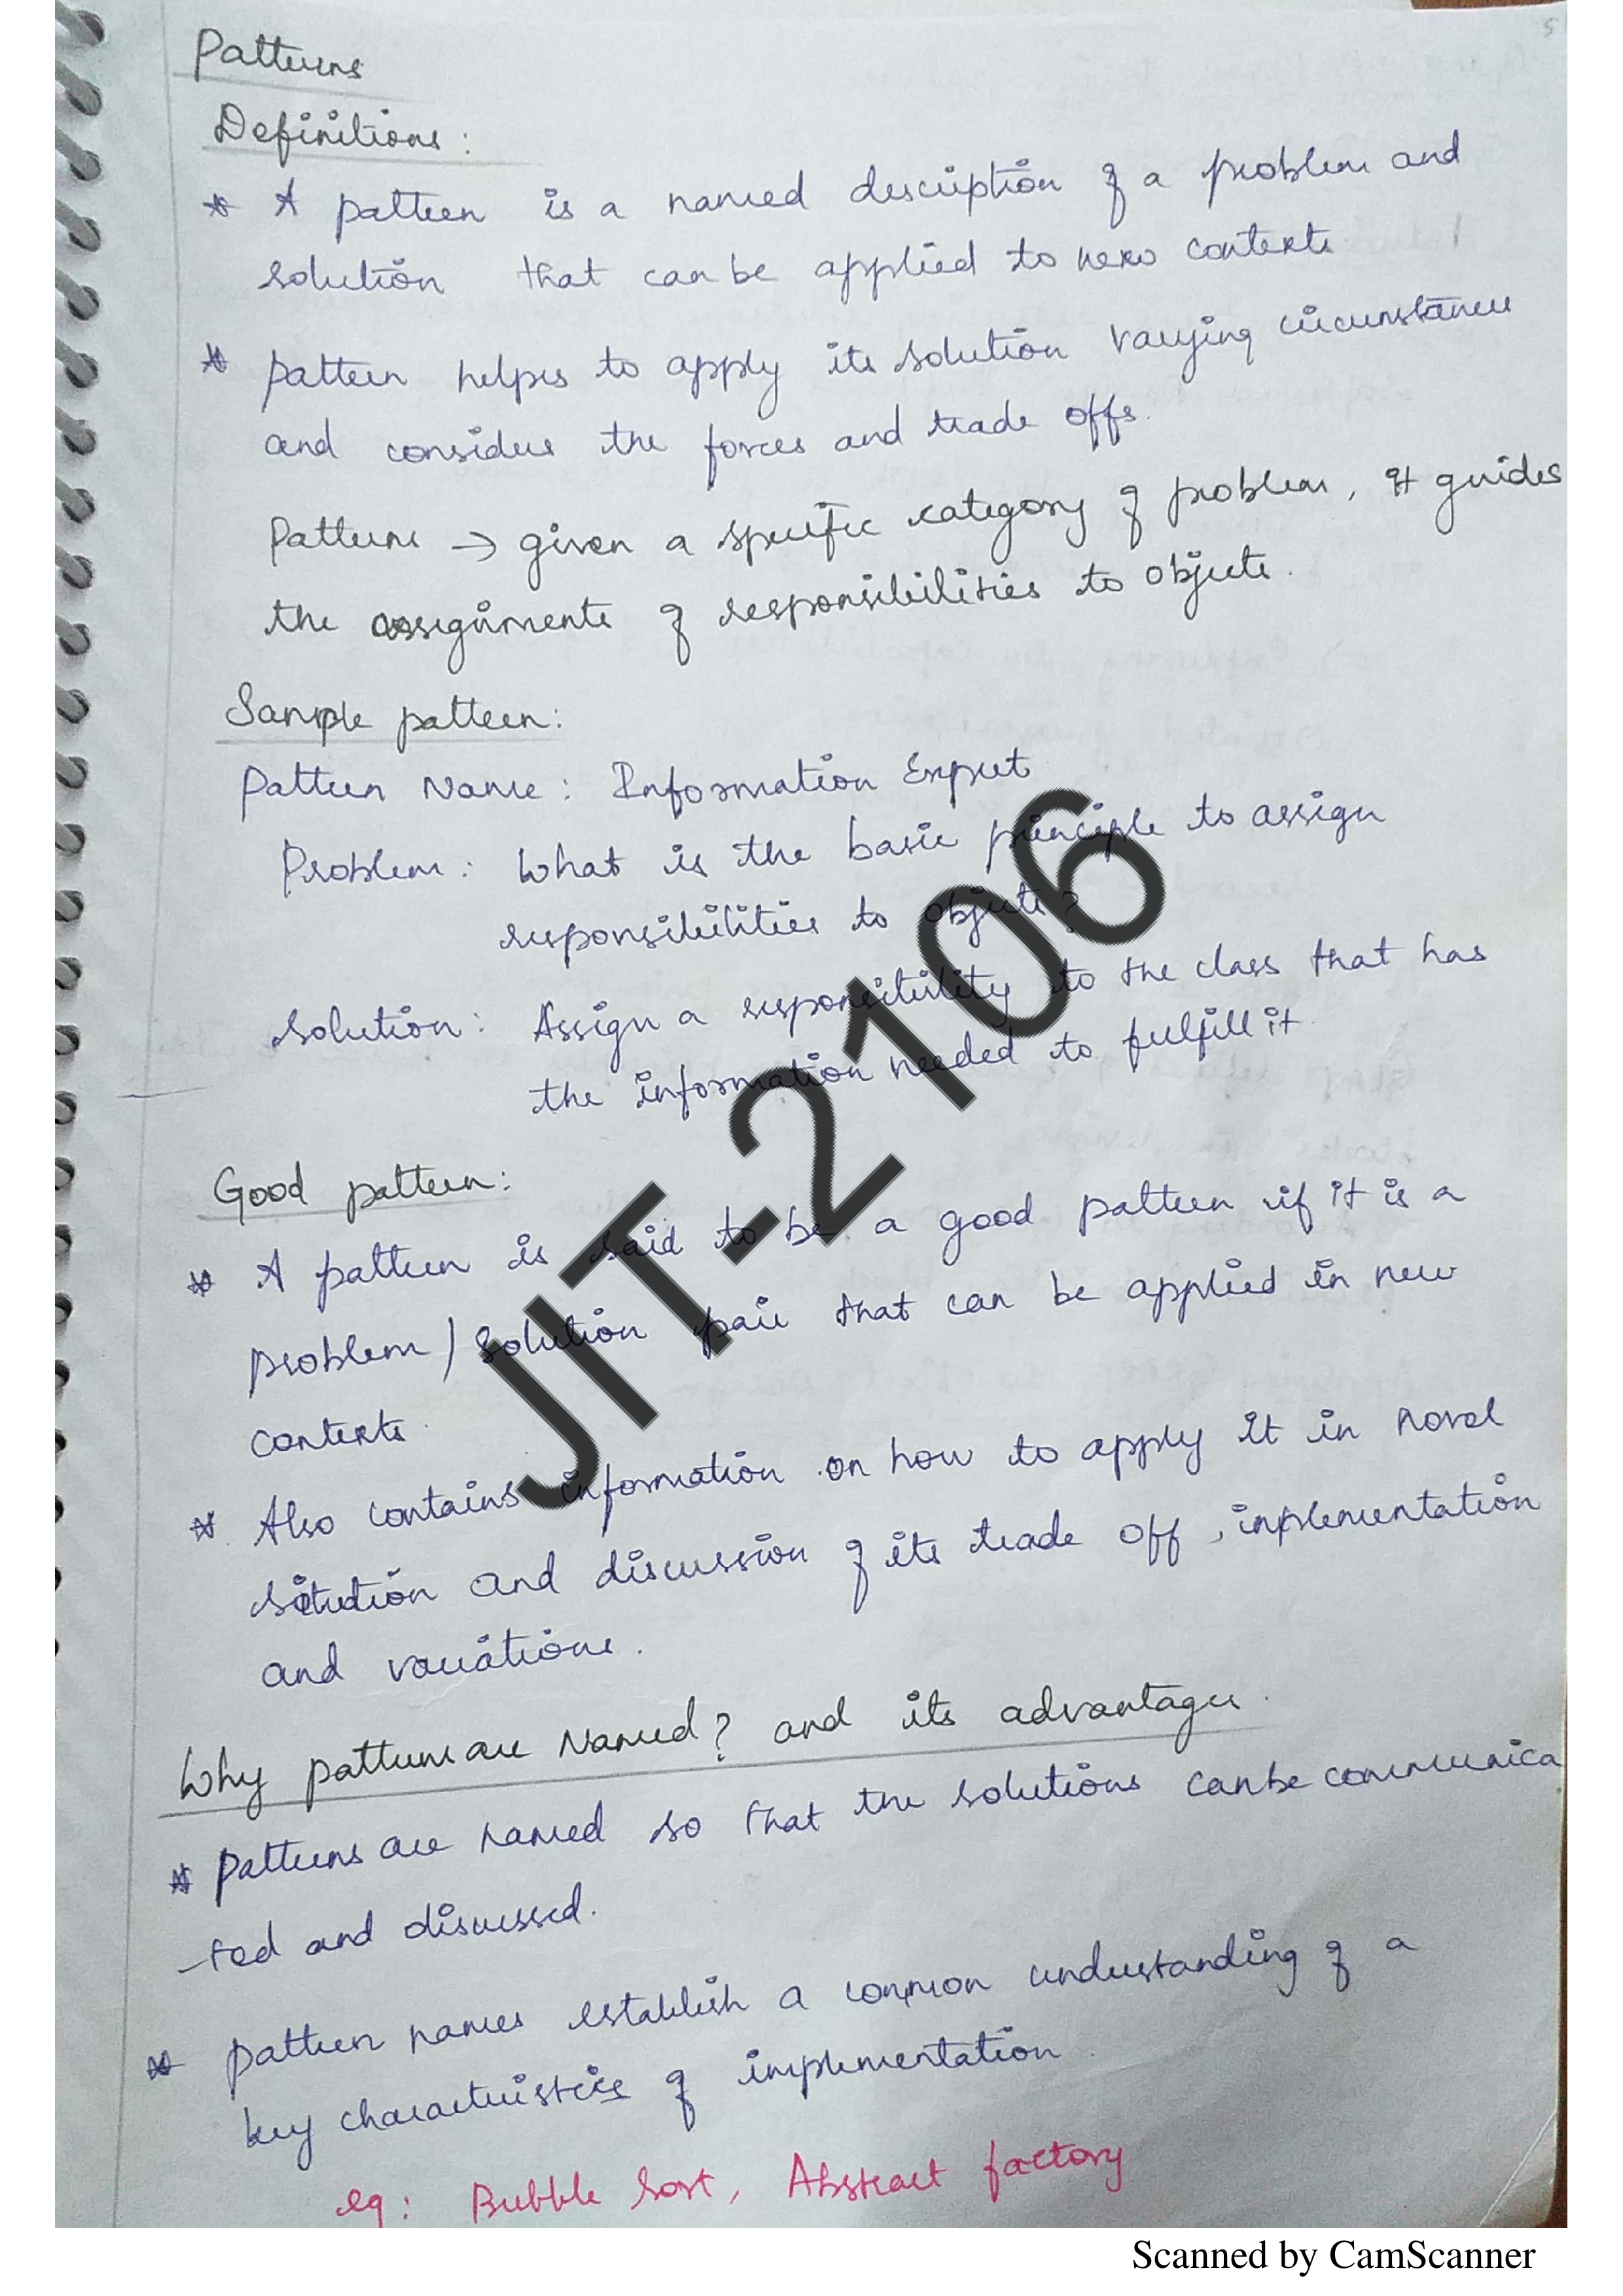 5
Patterns
Definitions:
* A pattern is a named description of a problem and
solution that can be applied to new contexts
* pattern helps to apply its solution varying circumstances
and considers the forces and trade offs.
Patterns → given a specific category of problem, it guides
the assignments of responsibilities to objects.
Sample pattern:
Pattern Name: Information Expert
Problem: What is the basic principle to assign
responsibilities to objects?
Solution: Assign a responsibility to the class that has
the information needed to fulfill it.
JIT-2106
Good pattern:
* A pattern is said to be a good pattern if it is a
problem/solution pair that can be applied in new
contexts.
* Also contains information on how to apply it in novel
situation and discussion of its trade off, implementation
and variations.
Why patterns are Named? and its advantages.
* Patterns are named so that the solutions can be communica
-ted and discussed.
* pattern names establish a common understanding of a
key characteristics of implementation.
eg: Bubble Sort, Abstract factory
Scanned by CamScanner